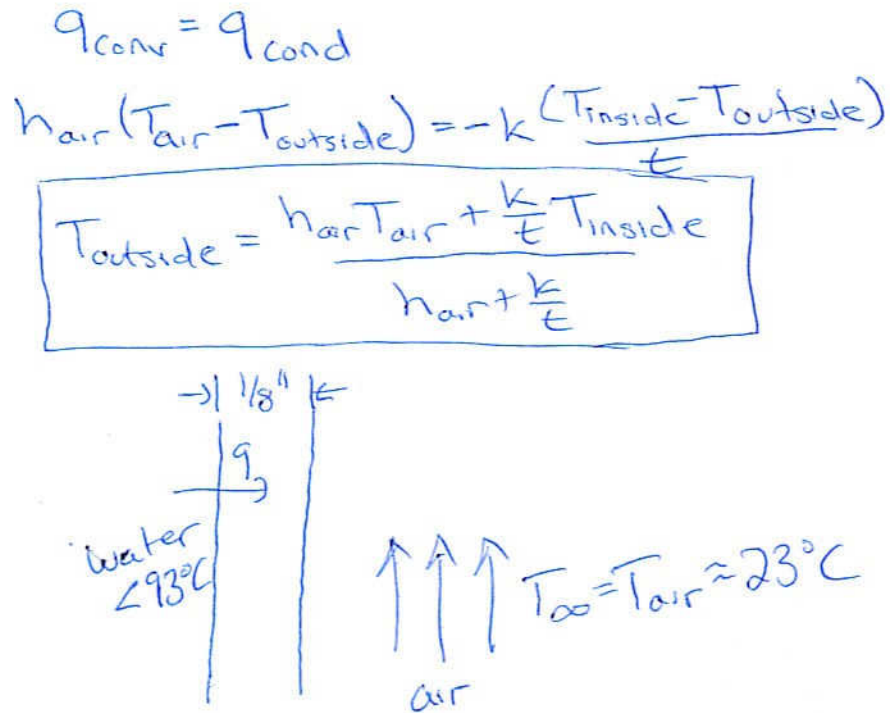 q_conv = q_cond
h_air (T_air - T_outside) = -k (T_inside - T_outside) / t
T_outside = (h_air T_air + k/t T_inside) / (h_air + k/t)
1/8"
q
water
<93°C
T_∞ = T_air ≈ 23°C
air